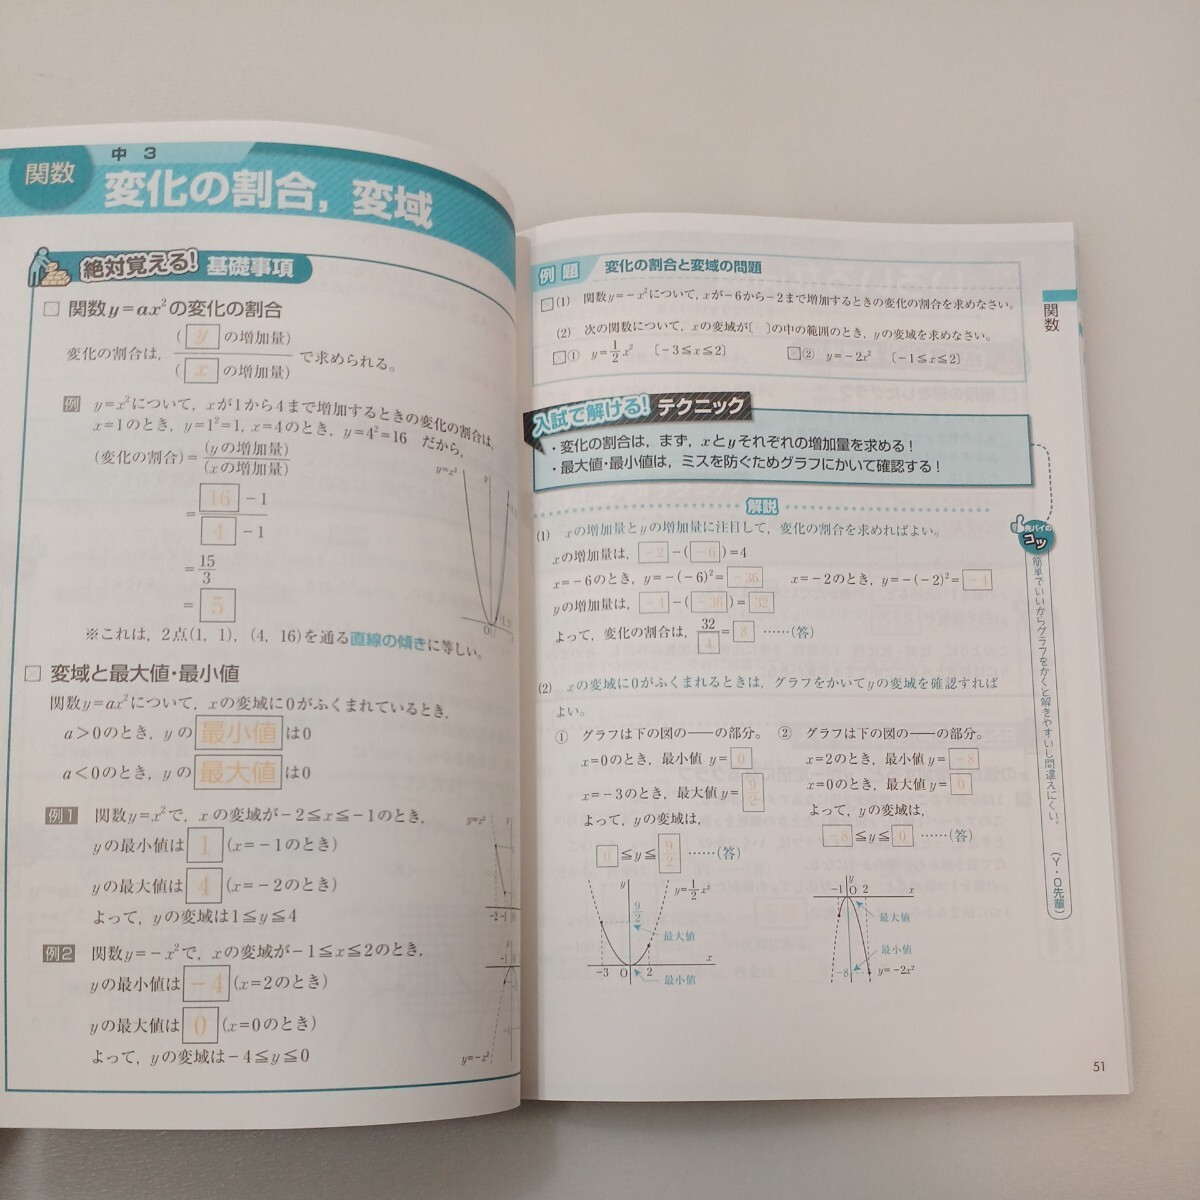 関数
中 3
変化の割合，変域
絶対覚える！ 基礎事項
関数y=ax²の変化の割合
変化の割合は，(yの増加量)/(xの増加量)で求められる。
例 y=x²について，xが1から4まで増加するときの変化の割合は，
x=1のとき，y=1²=1，x=4のとき，y=4²=16 だから，
(変化の割合)=(yの増加量)/(xの増加量)
=(16-1)/(4-1)
=15/3
=5
y=x²
y
O
※これは，2点(1，1)，(4，16)を通る直線の傾きに等しい。
変域と最大値・最小値
関数y=ax²について，xの変域に0がふくまれているとき，
a>0のとき，yの最小値は0
a<0のとき，yの最大値は0
例1 関数y=x²で，xの変域が-2≦x≦-1のとき，
yの最小値は1(x=-1のとき)
yの最大値は4(x=-2のとき)
よって，yの変域は1≦y≦4
y=x²
-2 -1
例2 関数y=-x²で，xの変域が-1≦x≦2のとき，
yの最小値は-4(x=2のとき)
yの最大値は0(x=0のとき)
よって，yの変域は-4≦y≦0
-1
y=-x²
例題 変化の割合と変域の問題
(1) 関数y=-x²について，xが-6から-2まで増加するときの変化の割合を求めなさい。
(2) 次の関数について，xの変域が〔 〕の中の範囲のとき，yの変域を求めなさい。
① y=1/2x² 〔-3≦x≦2〕 ② y=-2x² 〔-1≦x≦2〕
入試で解ける！テクニック
・変化の割合は，まず，xとyそれぞれの増加量を求める！
・最大値・最小値は，ミスを防ぐためグラフにかいて確認する！
解説
(1) xの増加量とyの増加量に注目して，変化の割合を求めればよい。
xの増加量は，-2-(-6)=4
x=-6のとき，y=-(-6)²=-36 x=-2のとき，y=-(-2)²=-4
yの増加量は，-4-(-36)=32
よって，変化の割合は，32/4=8 ……(答)
(2) xの変域に0がふくまれるときは，グラフをかいてyの変域を確認すれば
よい。
① グラフは下の図の──の部分。
x=0のとき，最小値 y=0
x=-3のとき，最大値y=9/2
よって，yの変域は，
0≦y≦9/2 ……(答)
② グラフは下の図の──の部分。
x=2のとき，最小値y=-8
x=0のとき，最大値y=0
よって，yの変域は，
-8≦y≦0 ……(答)
y
y=1/2x²
9/2
最大値
-3 O 2 x
最小値
y
-1 O 2 x
最大値
最小値
-8
y=-2x²
関数
先パイの
コツ
簡単でいいからグラフをかくと解きやすいし間違えにくい。
（Y・O先輩）
51